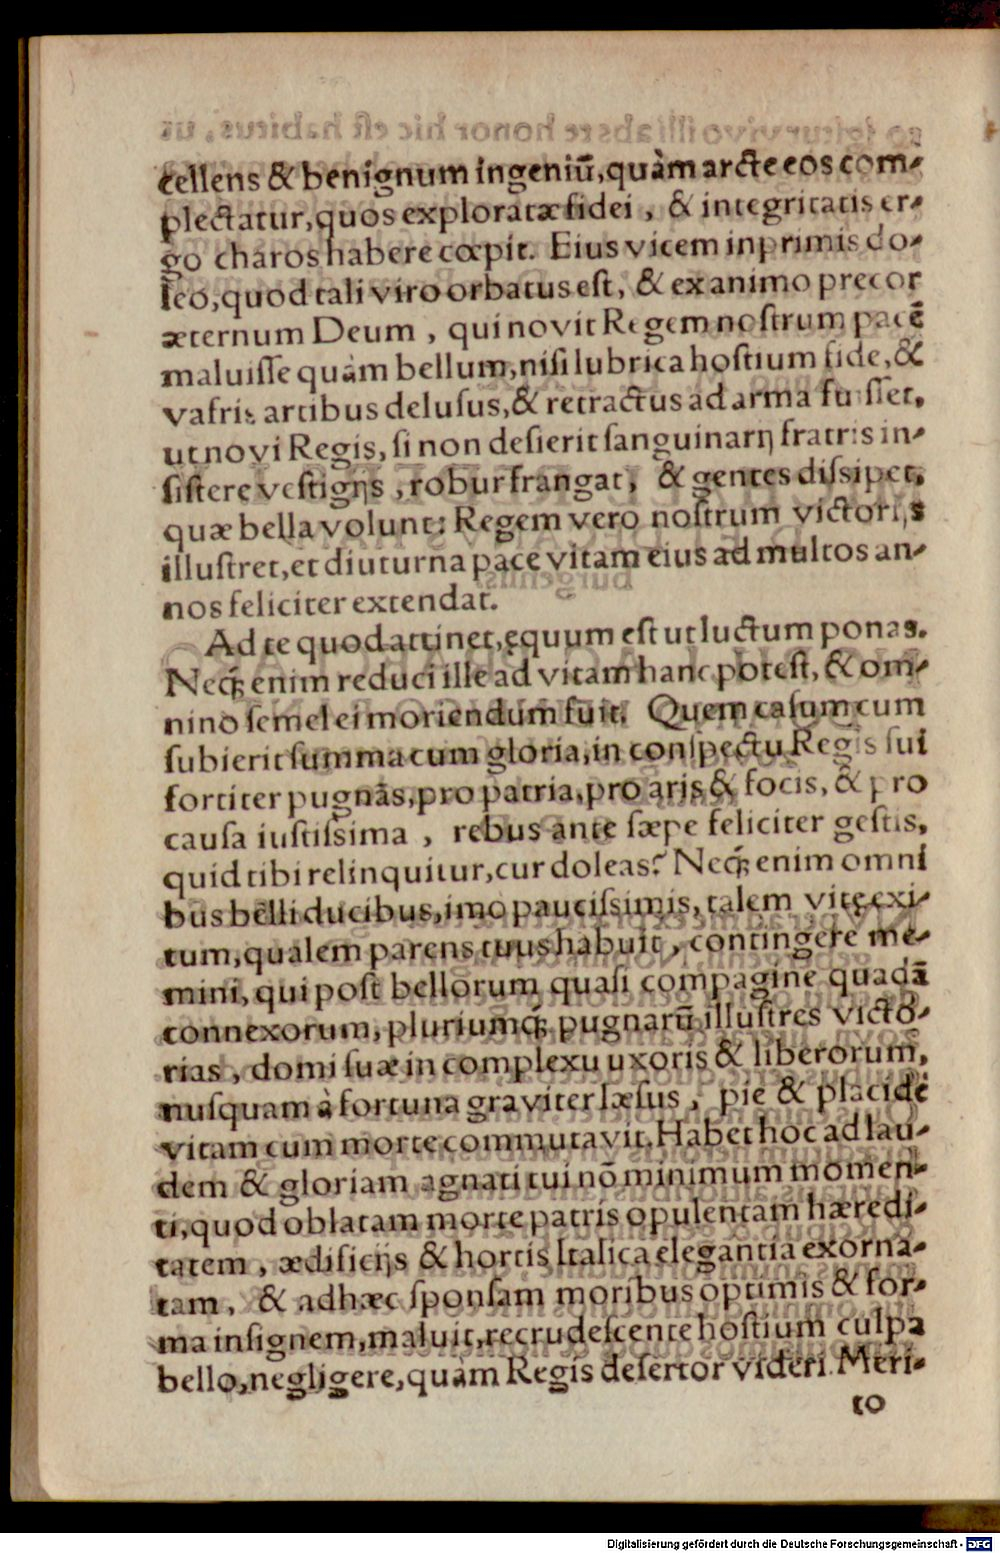 cellens & benignum ingeniũ,quàm arcte eos com-
plectatur,quos exploratæ fidei , & integritatis er-
go charos habere cœpit. Eius vicem inprimis do-
leo,quod tali viro orbatus est, & ex animo precor
æternum Deum , qui novit Regem nostrum pacẽ
maluisse quàm bellum,nisi lubrica hostium fide,&
vafris artibus delusus,& retractus ad arma fuisset,
ut novi Regis, si non desierit sanguinarij fratris in-
sistere vestigijs , robur frangat, & gentes dissipet,
quæ bella volunt: Regem vero nostrum victorijs
illustret,et diuturna pace vitam eius ad multos an-
nos feliciter extendat.
Ad te quod attinet,ęquum est ut luctum ponas.
Neq; enim reduci ille ad vitam hanc potest, & om-
nino semel ei moriendum fuit. Quem casum cum
subierit summa cum gloria,in conspectu Regis sui
fortiter pugnãs,pro patria,pro aris & focis, & pro
causa iustissima , rebus ante sæpe feliciter gestis,
quid tibi relinquitur,cur doleas? Neq; enim omni
bus belli ducibus,imo paucissimis, talem vitę exi-
tum,qualem parens tuus habuit , contingere me-
mini, qui post bellorum quasi compagine quadã
connexorum, pluriumq; pugnarũ illustres victo-
rias , domi suæ in complexu uxoris & liberorum,
nusquam à fortuna graviter læsus , pie & placidè
vitam cum morte commutavit. Habet hoc ad lau-
dem & gloriam agnati tui nõ minimum momen-
ti,quod oblatam morte patris opulentam hæredi-
tatem , ædificijs & hortis Italica elegantia exorna-
tam , & adhæc sponsam moribus optimis & for-
ma insignem,maluit,recrudescente hostium culpa
bello,negligere,quàm Regis desertor videri. Meri-
to
Digitalisierung gefördert durch die Deutsche Forschungsgemeinschaft - DFG